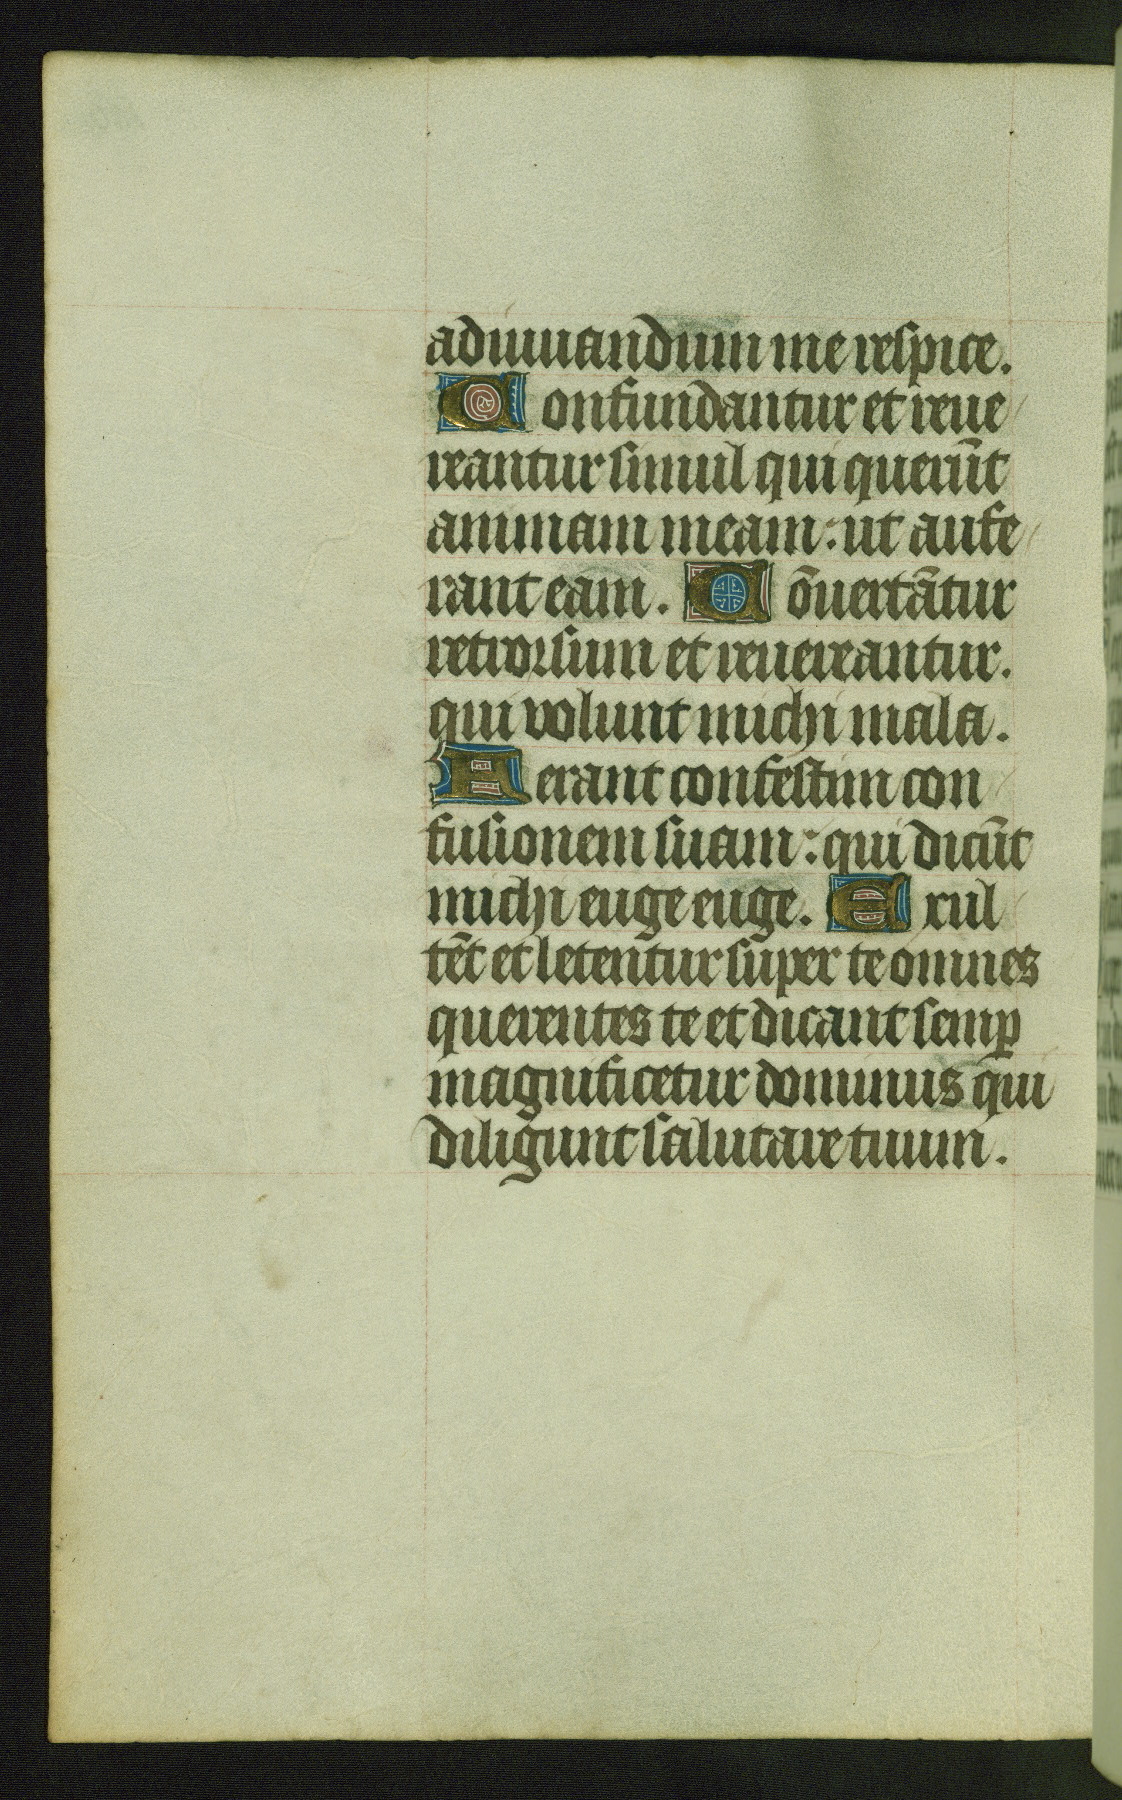 adiuuandum me respice.
Confundantur et reue
reantur simul qui querūt
animam meam: ut aufe
rant eam. Cōuertātur
retrorsum et reuereantur.
qui volunt michi mala.
Ferant confestim con
fusionem suam: qui dicūt
michi euge euge. Exul
tēt et letentur super te omnes
querentes te et dicant semꝑ
magnificetur dominus qui
diligunt salutare tuum.